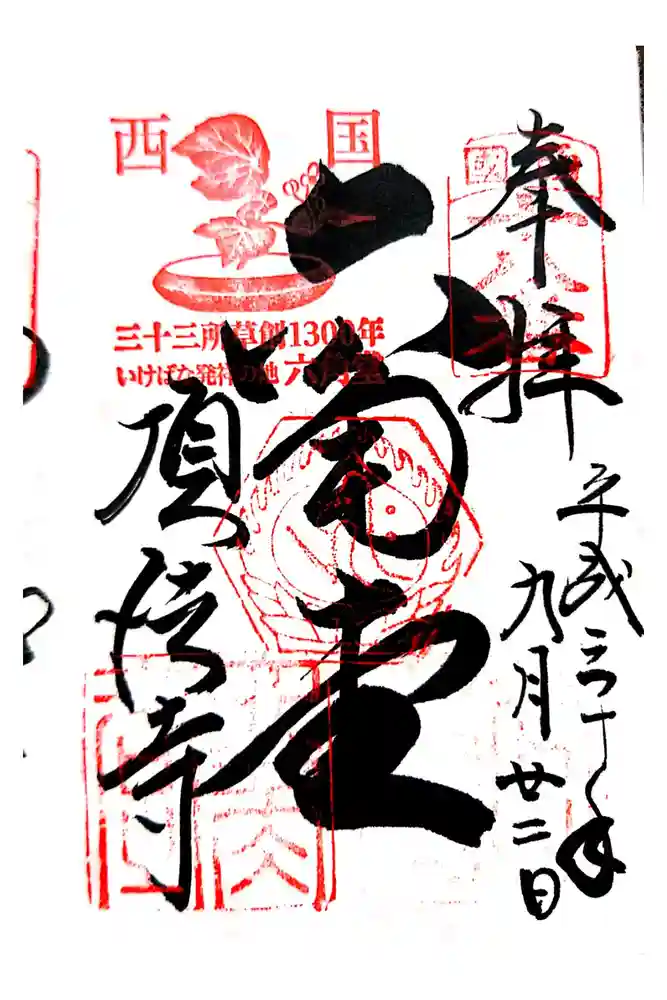 奉拝
平成三十年
九月廿二日
六角堂
頂法寺
西国
三十三所草創1300年
いけばな発祥の地 六角堂